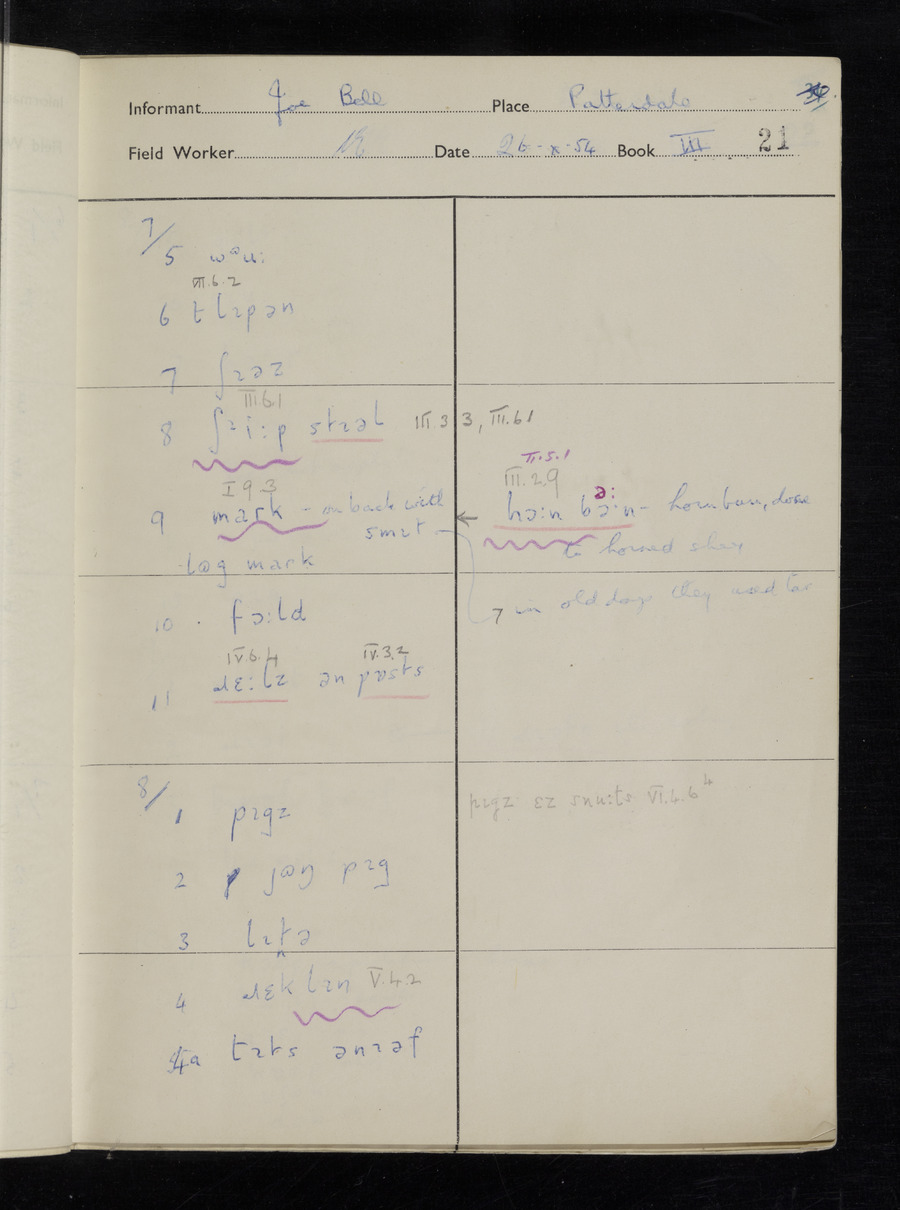 Informant Joe Bell Place Patterdale
Field Worker Date 26-x-54 Book III 21
7/
5 wᵊu:
VII.6.2
6 tlɪpən
7 ʃɪəz
III.6.1
8 ʃɪi:p stɪəl III.3.3, III.6.1
I 9 3
9 mark - on back with
smɪt
lɒg mark
II.5.1
III.2.9
ə:
hɔ:n bɔ:n - hornburn, done
to horned sheep
→ in old days they used tar
10 fɔ:ld
IV.6.4 IV.3.2
11 ɹɛ:lz ən pɒsts
8/
1 pɪgz
pɪgz ɛz snu:ts VI.4.6⁴
2 jɒŋ pɪg
3 lɪtə
4 ɹɛklɪn V.4.2
4a tɪts ənɪəf